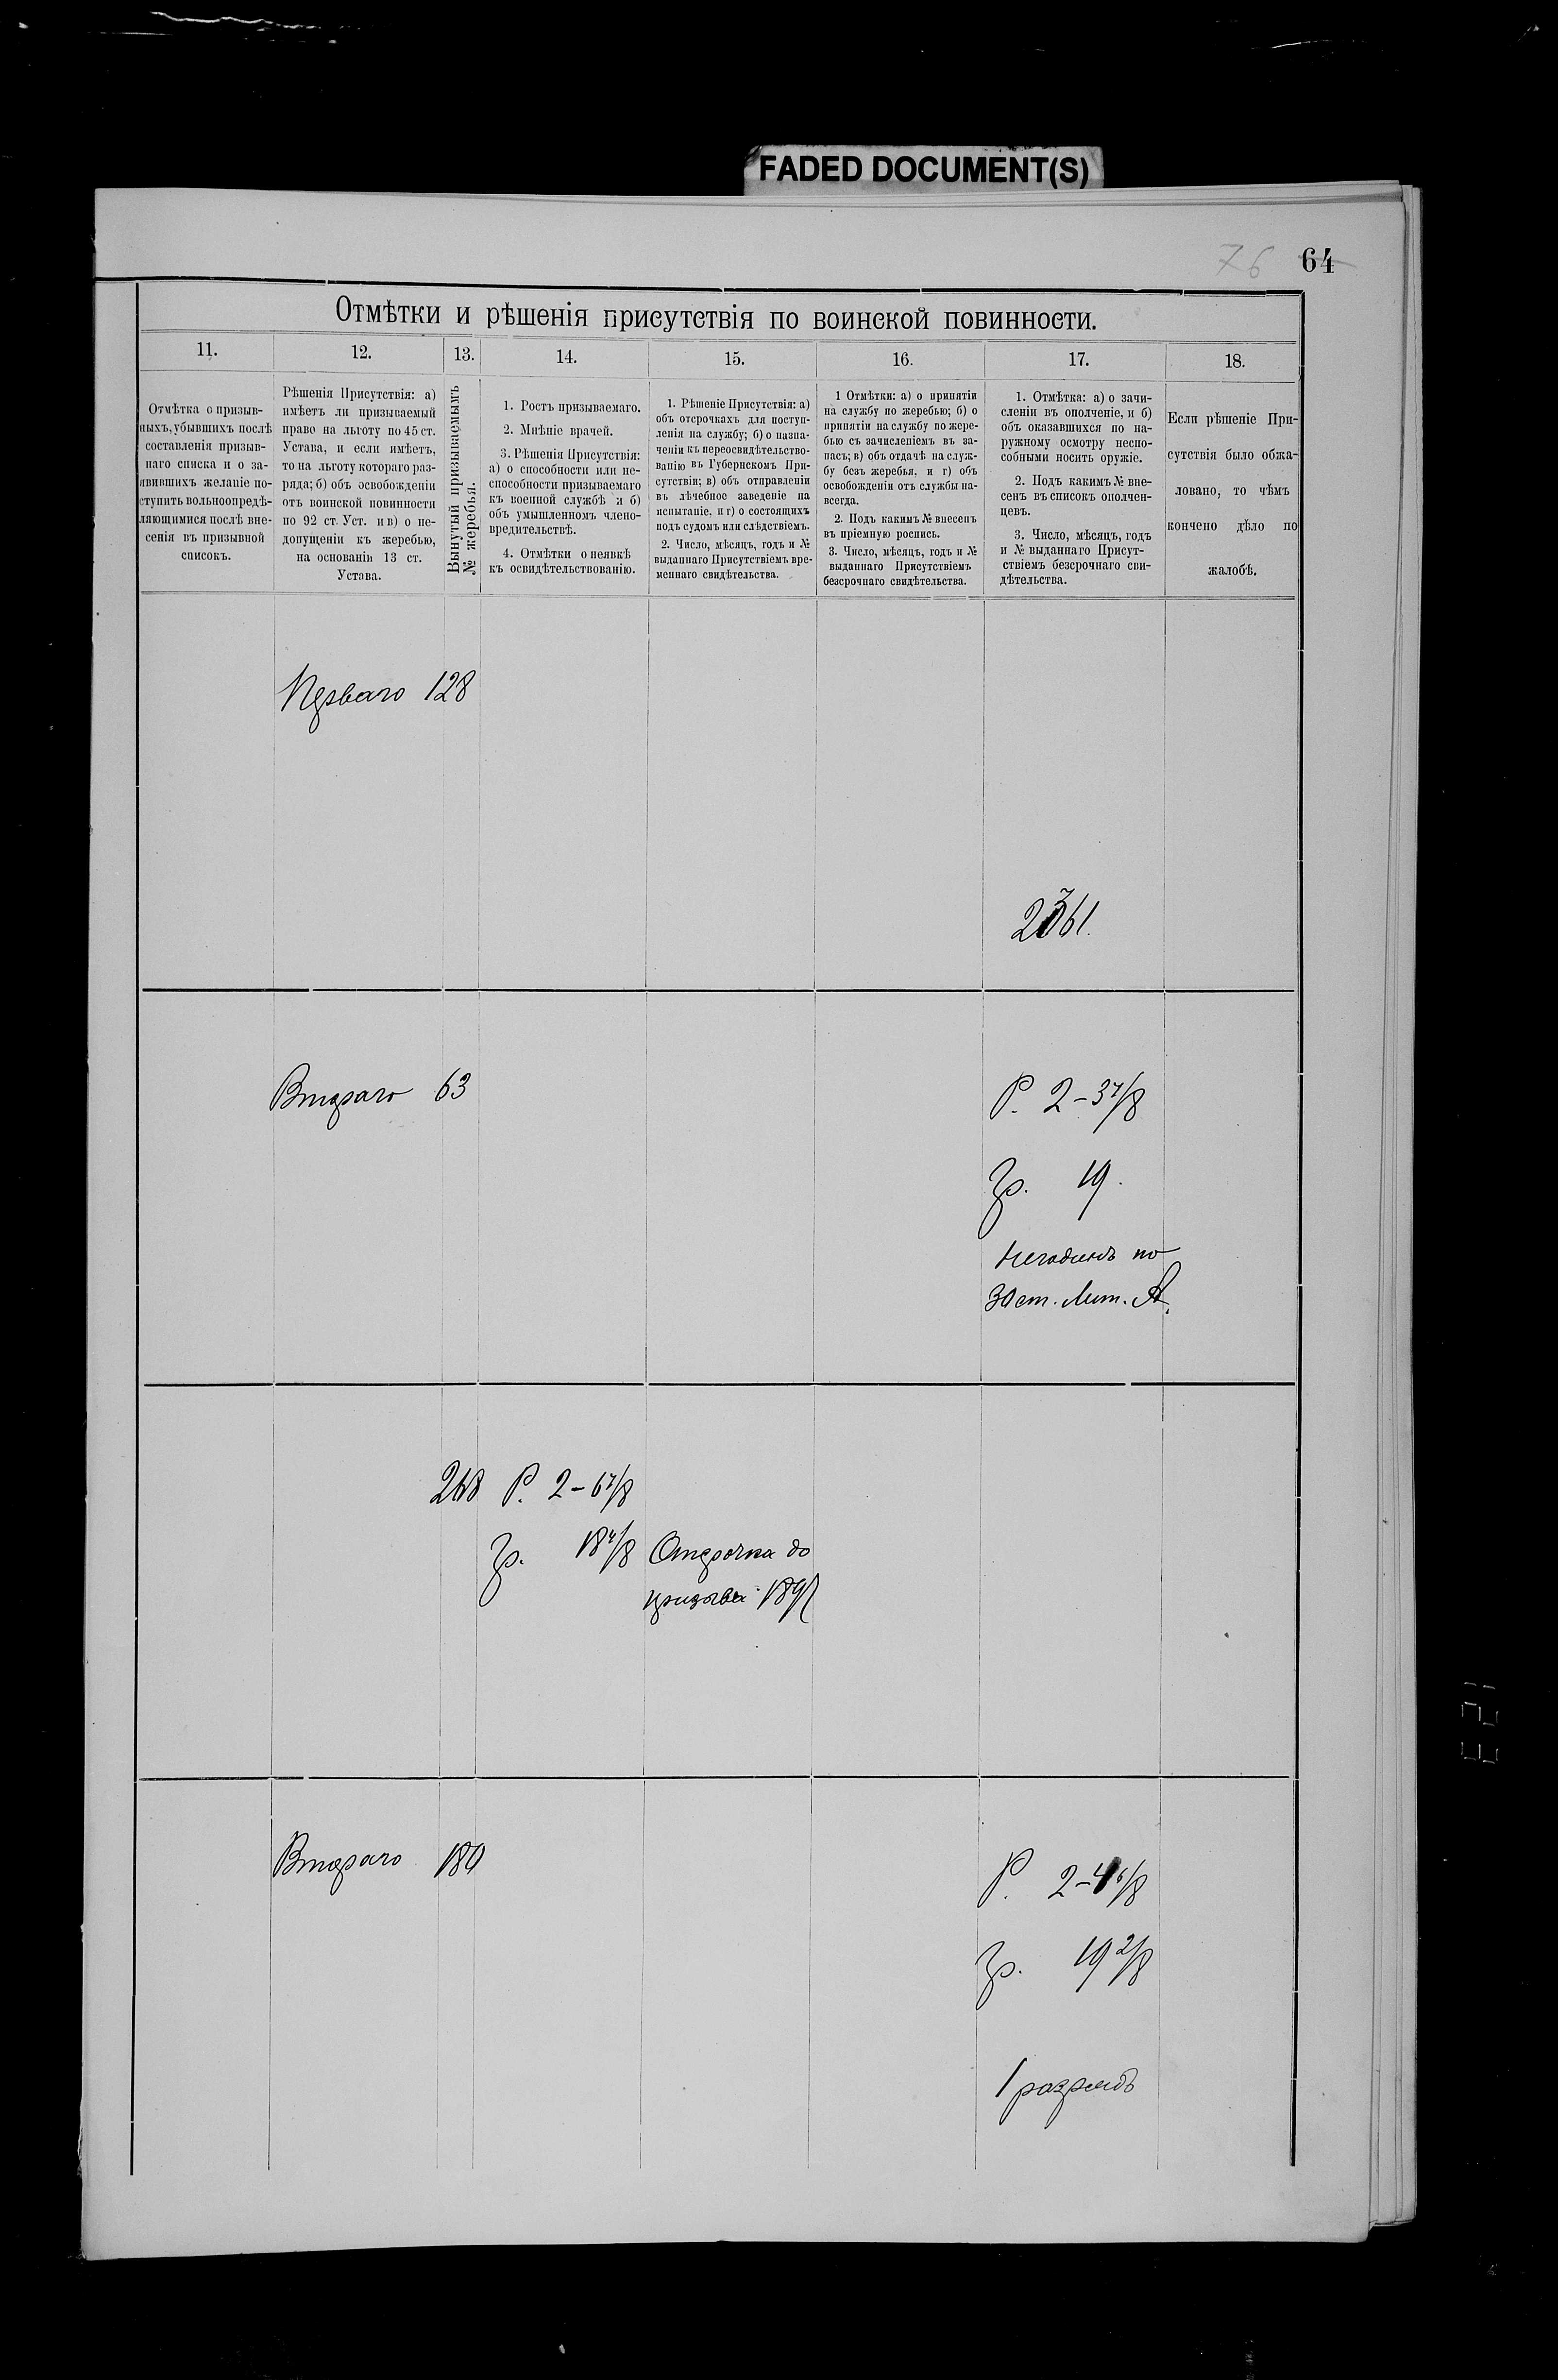 FADED DOCUMENT(S)
76 64
Отмѣтки и рѣшенія присутствія по воинской повинности.
11. 12. 13. 14. 15. 16. 17. 18.
Отмѣтка о призыв-
ныхъ, убывшихъ послѣ
составленія призыв-
наго списка и о за-
явившихъ желаніе по-
ступить вольноопредѣ-
ляющимися послѣ вне-
сенія въ призывной
списокъ.
Рѣшенія Присутствія: а)
имѣетъ ли призываемый
право на льготу по 45 ст.
Устава, и если имѣетъ,
то на льготу котораго раз-
ряда; б) объ освобожденіи
отъ воинской повинности
по 92 ст. Уст. и в) о не-
допущеніи къ жеребью,
на основаніи 13 ст.
Устава.
Вынутый призываемымъ
№ жеребья.
1. Ростъ призываемаго.
2. Мнѣніе врачей.
3. Рѣшенія Присутствія:
а) о способности или не-
способности призываемаго
къ военной службѣ и б)
объ умышленномъ члено-
вредительствѣ.
4. Отмѣтки о неявкѣ
къ освидѣтельствованію.
1. Рѣшеніе Присутствія: а)
объ отсрочкахъ для поступ-
ленія на службу; б) о назна-
ченіи къ переосвидѣтельство-
ванію въ Губернскомъ При-
сутствіи; в) объ отправленіи
въ лѣчебное заведеніе на
испытаніе, и г) о состоящихъ
подъ судомъ или слѣдствіемъ.
2. Число, мѣсяцъ, годъ и №
выданнаго Присутствіемъ вре-
меннаго свидѣтельства.
1 Отмѣтки: а) о принятіи
на службу по жеребью; б) о
принятіи на службу по жере-
бью съ зачисленіемъ въ за-
пасъ; в) объ отдачѣ на служ-
бу безъ жеребья, и г) объ
освобожденіи отъ службы на-
всегда.
2. Подъ какимъ № внесенъ
въ пріемную роспись.
3. Число, мѣсяцъ, годъ и №
выданнаго Присутствіемъ
безсрочнаго свидѣтельства.
1. Отмѣтка: а) о зачи-
сленіи въ ополченіе, и б)
объ оказавшихся по на-
ружному осмотру неспо-
собными носить оружіе.
2. Подъ какимъ № вне-
сенъ въ списокъ ополчен-
цевъ.
3. Число, мѣсяцъ, годъ
и № выданнаго Присут-
ствіемъ безсрочнаго сви-
дѣтельства.
Если рѣшеніе При-
сутствія было обжа-
ловано, то чѣмъ
кончено дѣло по
жалобѣ.
Перваго 128
61.
Втораго 63
Р. 2-3 7/8
Гр. 19.
Негоденъ по
30 ст. Лит. А.
268 Р. 2-6 7/8
Гр. 18 4/8 Отсрочка до
призыва
Втораго 180
Р. 2-4 6/8
Гр. 19 2/8
1 разрядъ
E21